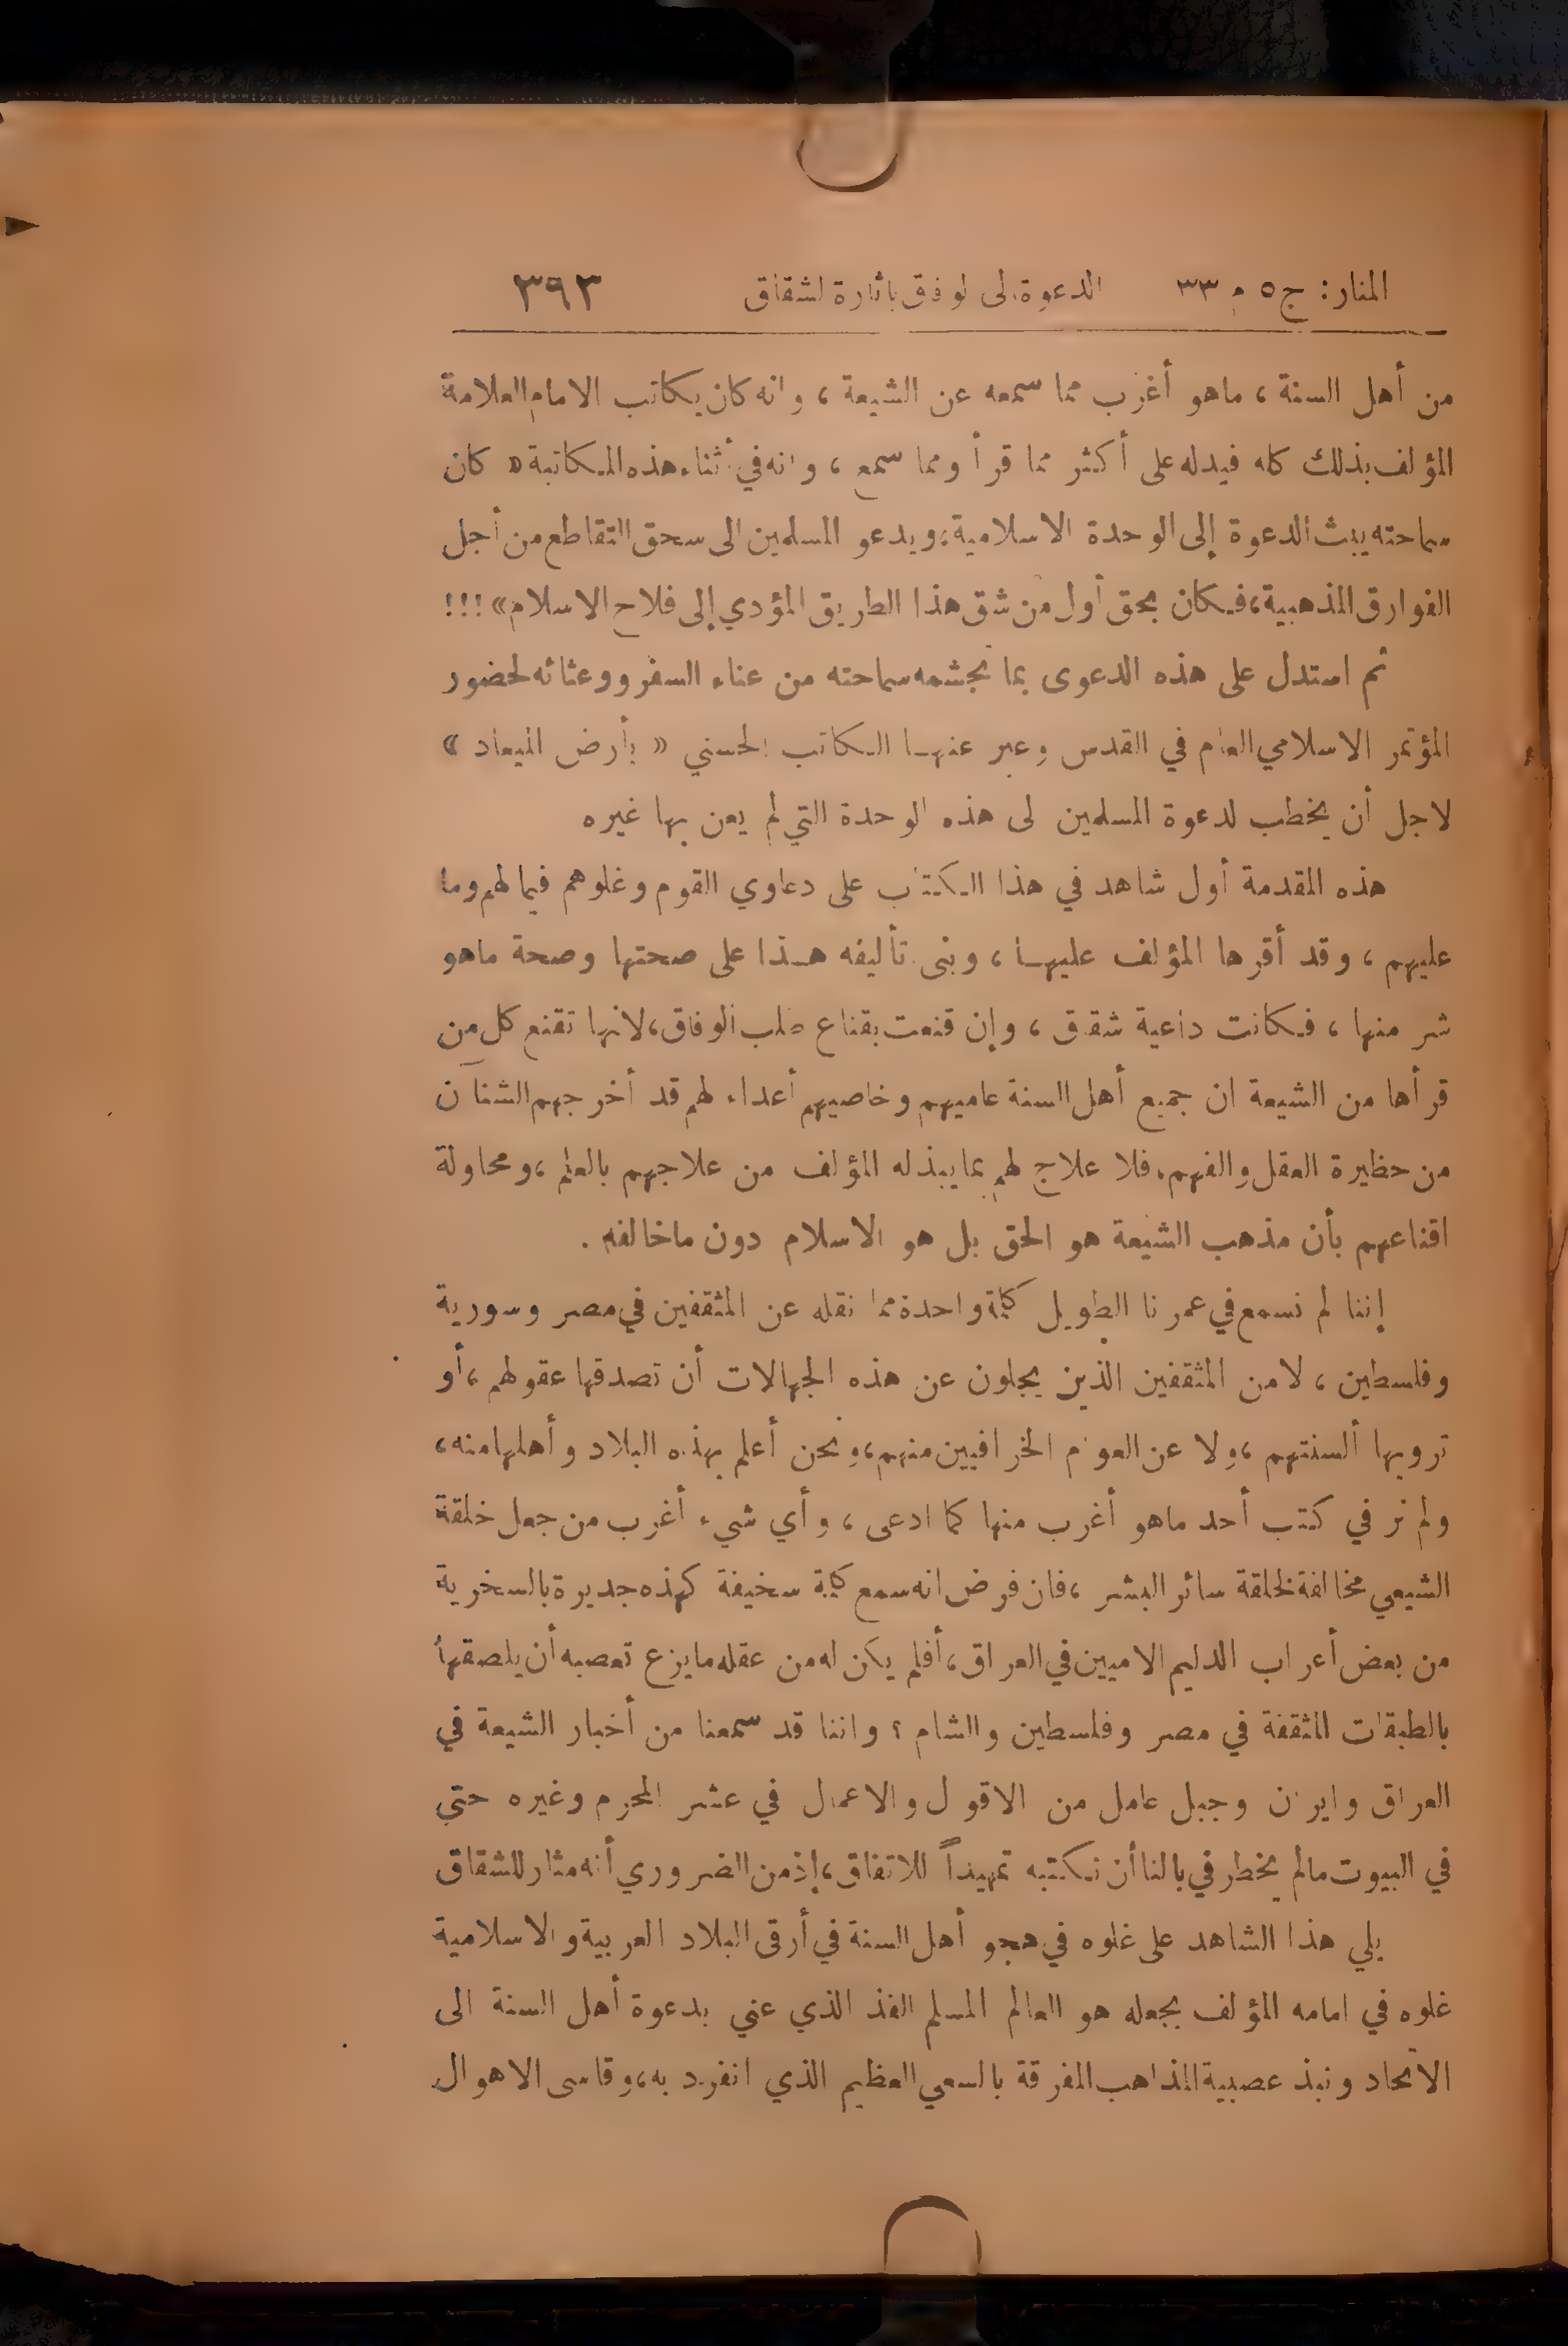 المنار: ج٥ م ٣٣ الدعوة إلى الوفاق باثارة الشقاق ٣٩٣
من أهل السنة ، ماهو أغرب مما سمعه عن الشيعة ، وانه كان يكاتب الامام العلامة
المؤلف بذلك كله فيدله على أكثر مما قرأ ومما سمع ، وانه في أثناء هذه المكاتبة « كان
سماحته يبث الدعوة إلى الوحدة الاسلامية، ويدعو المسلمين الى سحق التقاطع من أجل
الفوارق المذهبية، فكان بحق أول من شق هذا الطريق المؤدي إلى فلاح الاسلام» !!!
ثم استدل على هذه الدعوى بما تجشمه سماحته من عناء السفر ووعثائه لحضور
المؤتمر الاسلامي العام في القدس وعبر عنها الكاتب الحسني « بأرض الميعاد »
لاجل أن يخطب لدعوة المسلمين الى هذه الوحدة التي لم يعن بها غيره
هذه المقدمة أول شاهد في هذا الكتاب على دعاوي القوم وغلوهم فيما لهم وما
عليهم ، وقد أقرها المؤلف عليها ، وبنى تأليفه هذا على صحتها وصحة ماهو
شر منها ، فكانت داعية شقاق ، وإن قنعت بقناع طلب الوفاق، لانها تقنع كل من
قرأها من الشيعة ان جميع أهل السنة عاميهم وخاصيهم أعداء لهم قد أخرجهم الشنآن
من حظيرة العقل والفهم، فلا علاج لهم بما يبذله المؤلف من علاجهم بالعلم ، ومحاولة
اقناعهم بأن مذهب الشيعة هو الحق بل هو الاسلام دون ماخالفه .
إننا لم نسمع في عمرنا الطويل كلمة واحدة مما نقله عن المثقفين في مصر وسورية
وفلسطين ، لامن المثقفين الذين يجلون عن هذه الجهالات أن تصدقها عقولهم ، أو
ترويها ألسنتهم ، ولا عن العوام الخرافيين منهم، ونحن أعلم بهذه البلاد وأهلها منه،
ولم نر في كتب أحد ماهو أغرب منها كما ادعى ، وأي شيء أغرب من جعل خلقة
الشيعي مخالفة لخلقة سائر البشر ، فان فرض انه سمع كلمة سخيفة كهذه جديرة بالسخرية
من بعض أعراب الدليم الاميين في العراق، أفلم يكن له من عقله مايزع تعصبه أن يلصقها
بالطبقات المثقفة في مصر وفلسطين والشام ؟ واننا قد سمعنا من أخبار الشيعة في
العراق وايران وجبل عامل من الاقوال والاعمال في عشر المحرم وغيره حتى
في البيوت مالم يخطر في بالنا أن نكتبه تمهيداً للاتفاق، إذ من الضروري أنه مثار للشقاق
يلي هذا الشاهد على غلوه في هجو أهل السنة في أرقى البلاد العربية والاسلامية
غلوه في امامه المؤلف بجعله هو العالم المسلم الفذ الذي عني بدعوة أهل السنة الى
الاتحاد ونبذ عصبية المذاهب المفرقة بالسعي العظيم الذي انفرد به، وقاسى الاهوال